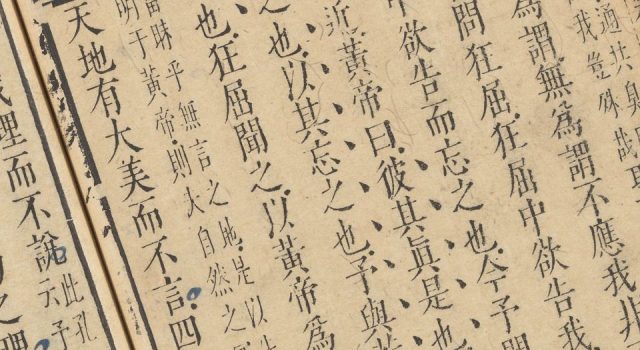 通共
我豈殊哉
爲謂無爲謂不應我非
問狂屈狂屈中欲告我
中欲告而忘之也今予問
近黃帝曰彼其眞是也
也以其忘之也予與
也狂屈聞之以黃帝爲
昧乎無言之地是以
明于黃帝則大自然之
天地有大美而不言四
理而不說
此孔
云予
之理